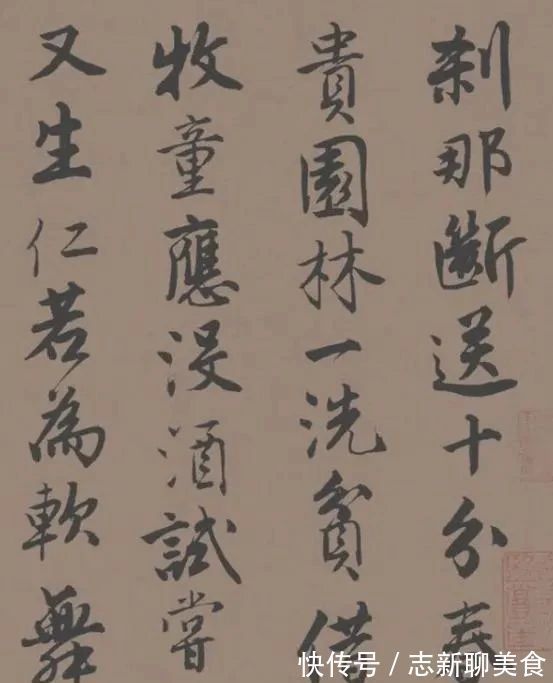 刹那斷送十分春
貴園林一洗貧借
牧童應沒酒試嘗
又生仁若為軟舞
快传号 / 志新聊美食